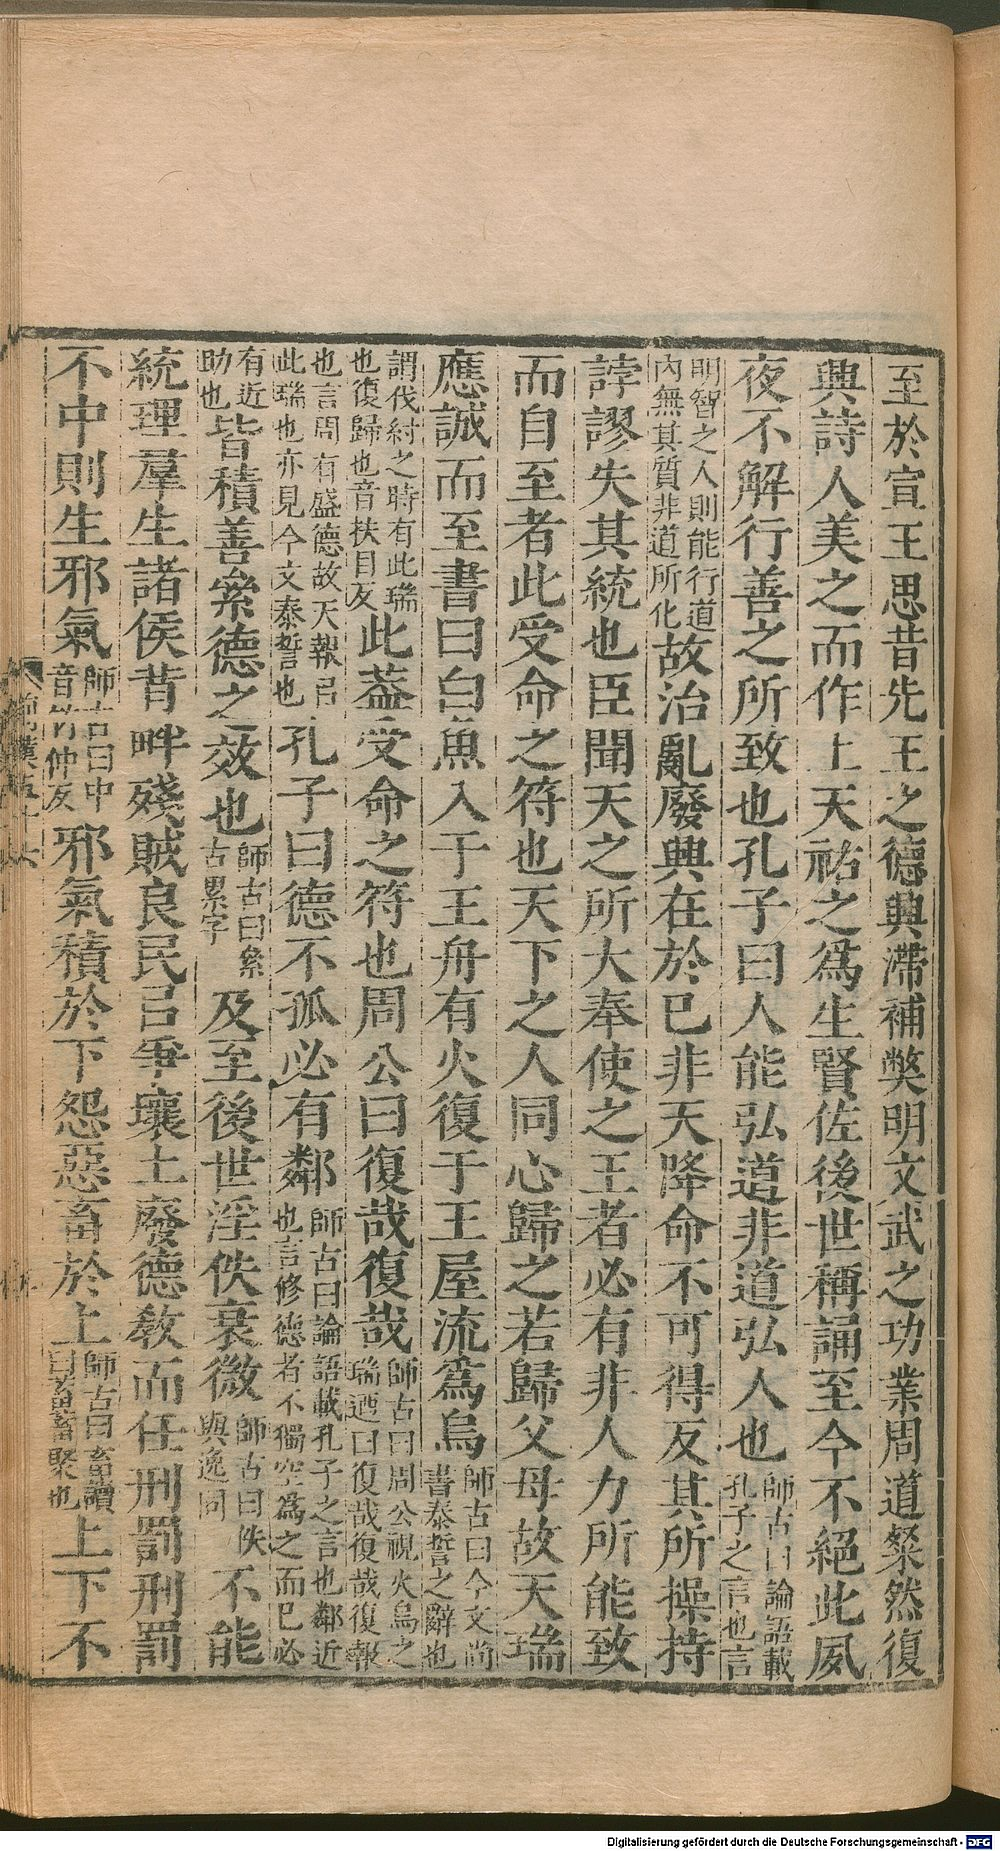 至於宣王思昔先王之德興滯補獘明文武之功業周道粲然復
興詩人美之而作上天祐之爲生賢佐後世稱誦至今不絕此夙
夜不解行善之所致也孔子曰人能弘道非道弘人也師古曰論語載孔子之言也言
明智之人則能行道內無其質非道所化故治亂廢興在於已非天降命不可得反其所操持
誖謬失其統也臣聞天之所大奉使之王者必有非人力所能致
而自至者此受命之符也天下之人同心歸之若歸父母故天瑞
應誠而至書曰白魚入于王舟有火復于王屋流爲烏師古曰今文尚書泰誓之辭也
謂伐紂之時有此瑞也復歸也音扶目反此葢受命之符也周公曰復哉復哉師古曰周公視火烏之瑞迺曰復哉復哉復報
也言周有盛德故天報㠯此瑞也亦見今文泰誓也孔子曰德不孤必有鄰師古曰論語載孔子之言也鄰近也言修德者不獨空爲之而已必
有近助也皆積善絫德之效也師古曰絫古累字及至後世淫佚衰微師古曰佚與逸同不能
統理羣生諸侯背畔殘賊良民㠯爭壤土廢德敎而任刑罰刑罰
不中則生邪氣師古曰中音竹仲反邪氣積於下怨惡畜於上師古曰畜讀曰蓄蓄聚也上下不
Digitalisierung gefördert durch die Deutsche Forschungsgemeinschaft - DFG